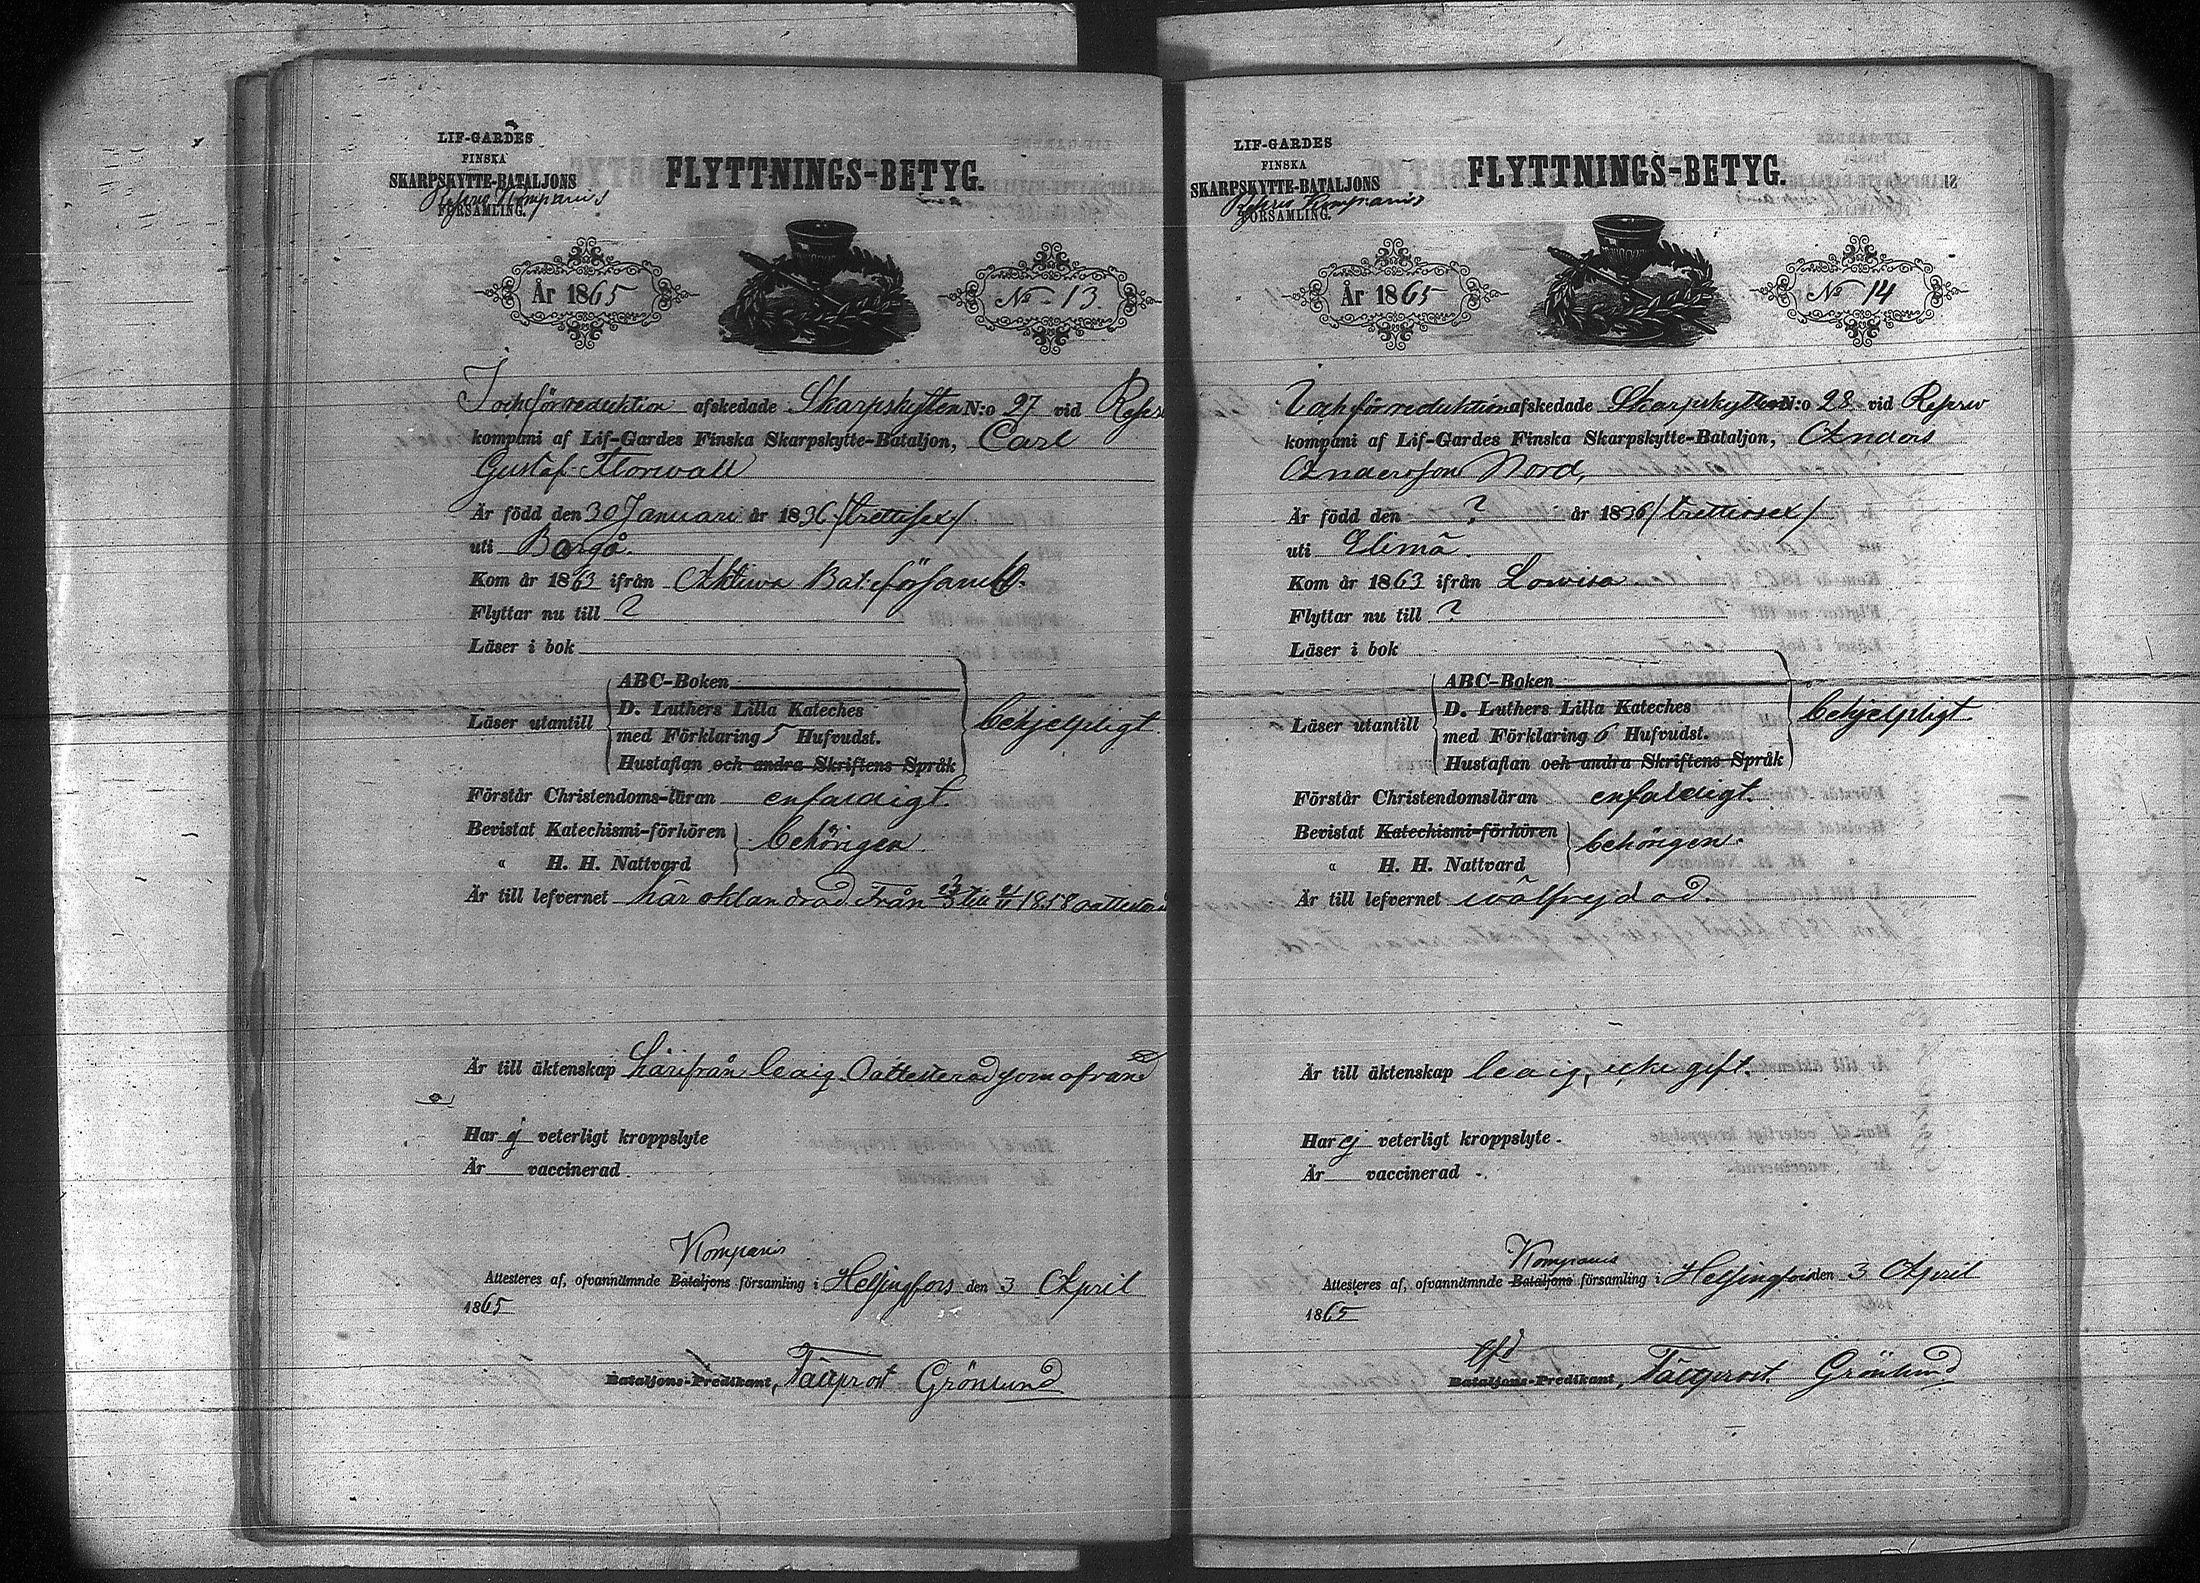 LIF-GARDES
FINSKA
SKARPSKYTTE-BATALJONS
Reserv Kompanis
FÖRSAMLING.
FLYTTNINGS-BETYG.
År 1865
No 13.
I och för reduktion afskedade Skarpskytten N:o 27 vid Reserv
kompani af Lif-Gardes Finska Skarpskytte-Bataljon, Carl
Gustaf Florwall
Är född den 30 Januari år 1836 /trettisex/
uti Borgå.
Kom år 1863 ifrån Aktiva Bat: församl.
Flyttar nu till ?
Läser i bok
ABC-Boken
D. Luthers Lilla Kateches
Läser utantill
med Förklaring 5 Hufvudst.
behjelpligt
Hustaflan och andra Skriftens Språk
Förstår Christendoms-läran enfaldigt
Bevistat Katechismi-förhören
behörigen
" H. H. Nattvard
Är till lefvernet här oklandrad Från 23/3 till 4/11 1858 oattesterad
Är till äktenskap härifrån ledig. Oattesterad som ofvan
Har ej veterligt kroppslyte
Är vaccinerad.
Kompanis
Attesteres af, ofvannämnde Bataljons församling i Helsingfors den 3 April
1865
Bataljons-Predikant, Fältprost Grönlund
LIF-GARDES
FINSKA
SKARPSKYTTE-BATALJONS
Reserv Kompanis
FÖRSAMLING.
FLYTTNINGS-BETYG.
År 1865
No 14
I och för reduktion afskedade Skarpskytten N:o 28 vid Reserv
kompani af Lif-Gardes Finska Skarpskytte-Bataljon, Anders
Andersson Nord,
Är född den ? år 1836 /trettiosex/
uti Elimä.
Kom år 1863 ifrån Lowisa
Flyttar nu till ?
Läser i bok
ABC-Boken
D. Luthers Lilla Kateches
Läser utantill
med Förklaring 6 Hufvudst.
behjelpligt
Hustaflan och andra Skriftens Språk
Förstår Christendomsläran enfaldigt.
Bevistat Katechismi-förhören
behörigen.
" H. H. Nattvard
Är till lefvernet wälfrejdad.
Är till äktenskap ledig, icke gift.
Har ej veterligt kroppslyte.
Är vaccinerad
Kompanis
Attesteres af, ofvannämnde Bataljons församling i Helsingfors den 3 April
1865
Bataljons-Predikant, Fältprost. Grönlund